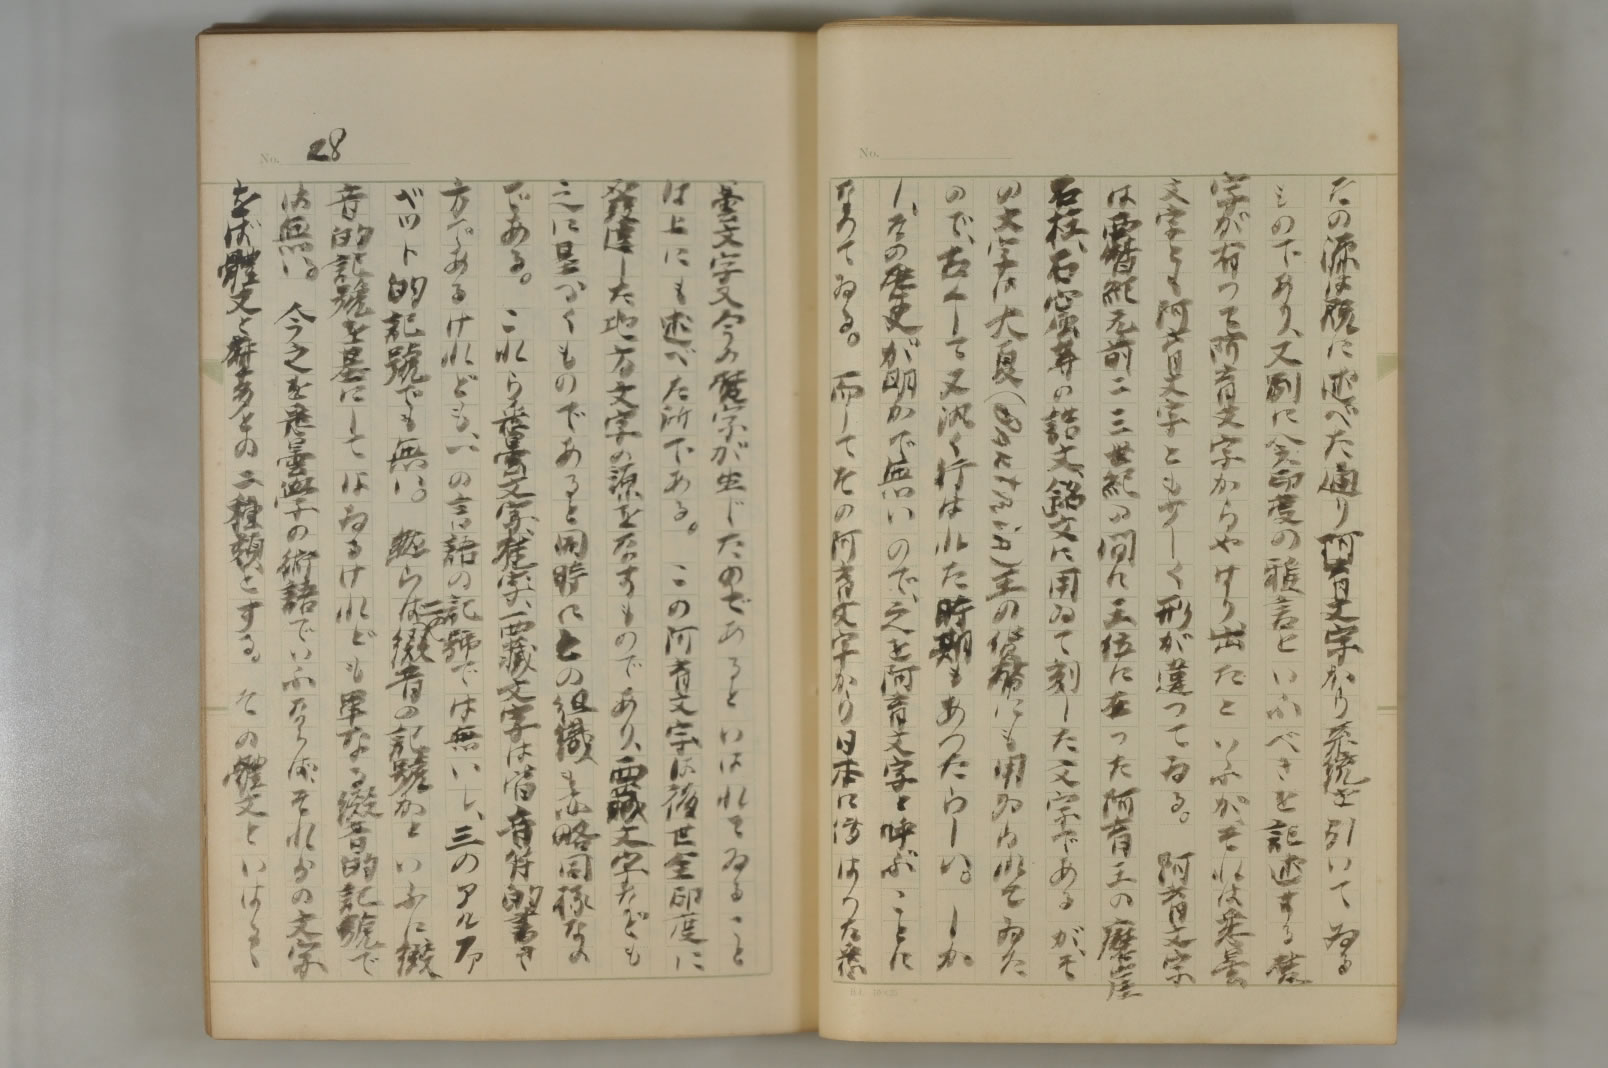 たの源は既に述べた通り阿育文字から系統を引いてゐる
ものであり、又別に今印度の雅言といふべきを記述する梵
字が有つて阿育文字からやはり出たといふがそれは悉曇
文字とも阿育文字とも少しく形が違つてゐる。阿育文字
は西暦紀元前二三世紀の間に王位に在つた阿育王の磨崖
石柱、石窟等の誥文、銘文に用ゐて刻した文字であるが、そ
の文字は大夏王の貨幣にも用ゐられてゐた
ので、古くして又汎く行はれた時期もあつたらしい。しか
し、その歴史が明かで無いので、之を阿育文字と呼ぶことに
なつてゐる。而してその阿育文字から日本に伝はつた悉
No. 28
曇文字又今の梵字が生じたのであるといはれてゐること
は上にも述べた所である。この阿育文字は後世全印度に
発達した地方文字の源をなすものであり、西蔵文字なども
之に基づくものであると同時にその組織も亦略同様なの
である。これら悉曇文字、梵字、西蔵文字は皆音符的書き
方であるけれども、一の言語の記号では無いし、三のアルファ
ベット的記號でも無い。然らば二の綴音の記號かといふに綴
音的記號を基にしてはゐるけれども単なる綴音的記號で
は無い。今之を悉曇学の術語でいふならば、それらの文字
をば體文と摩多との二種類とする。その體文といはるる
No.